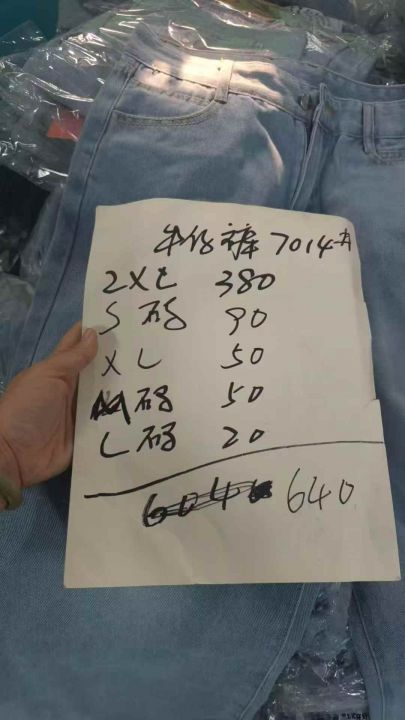 牛仔裤 7014#
2XL 380
S码 90
XL 50
M码 50
L码 20
640